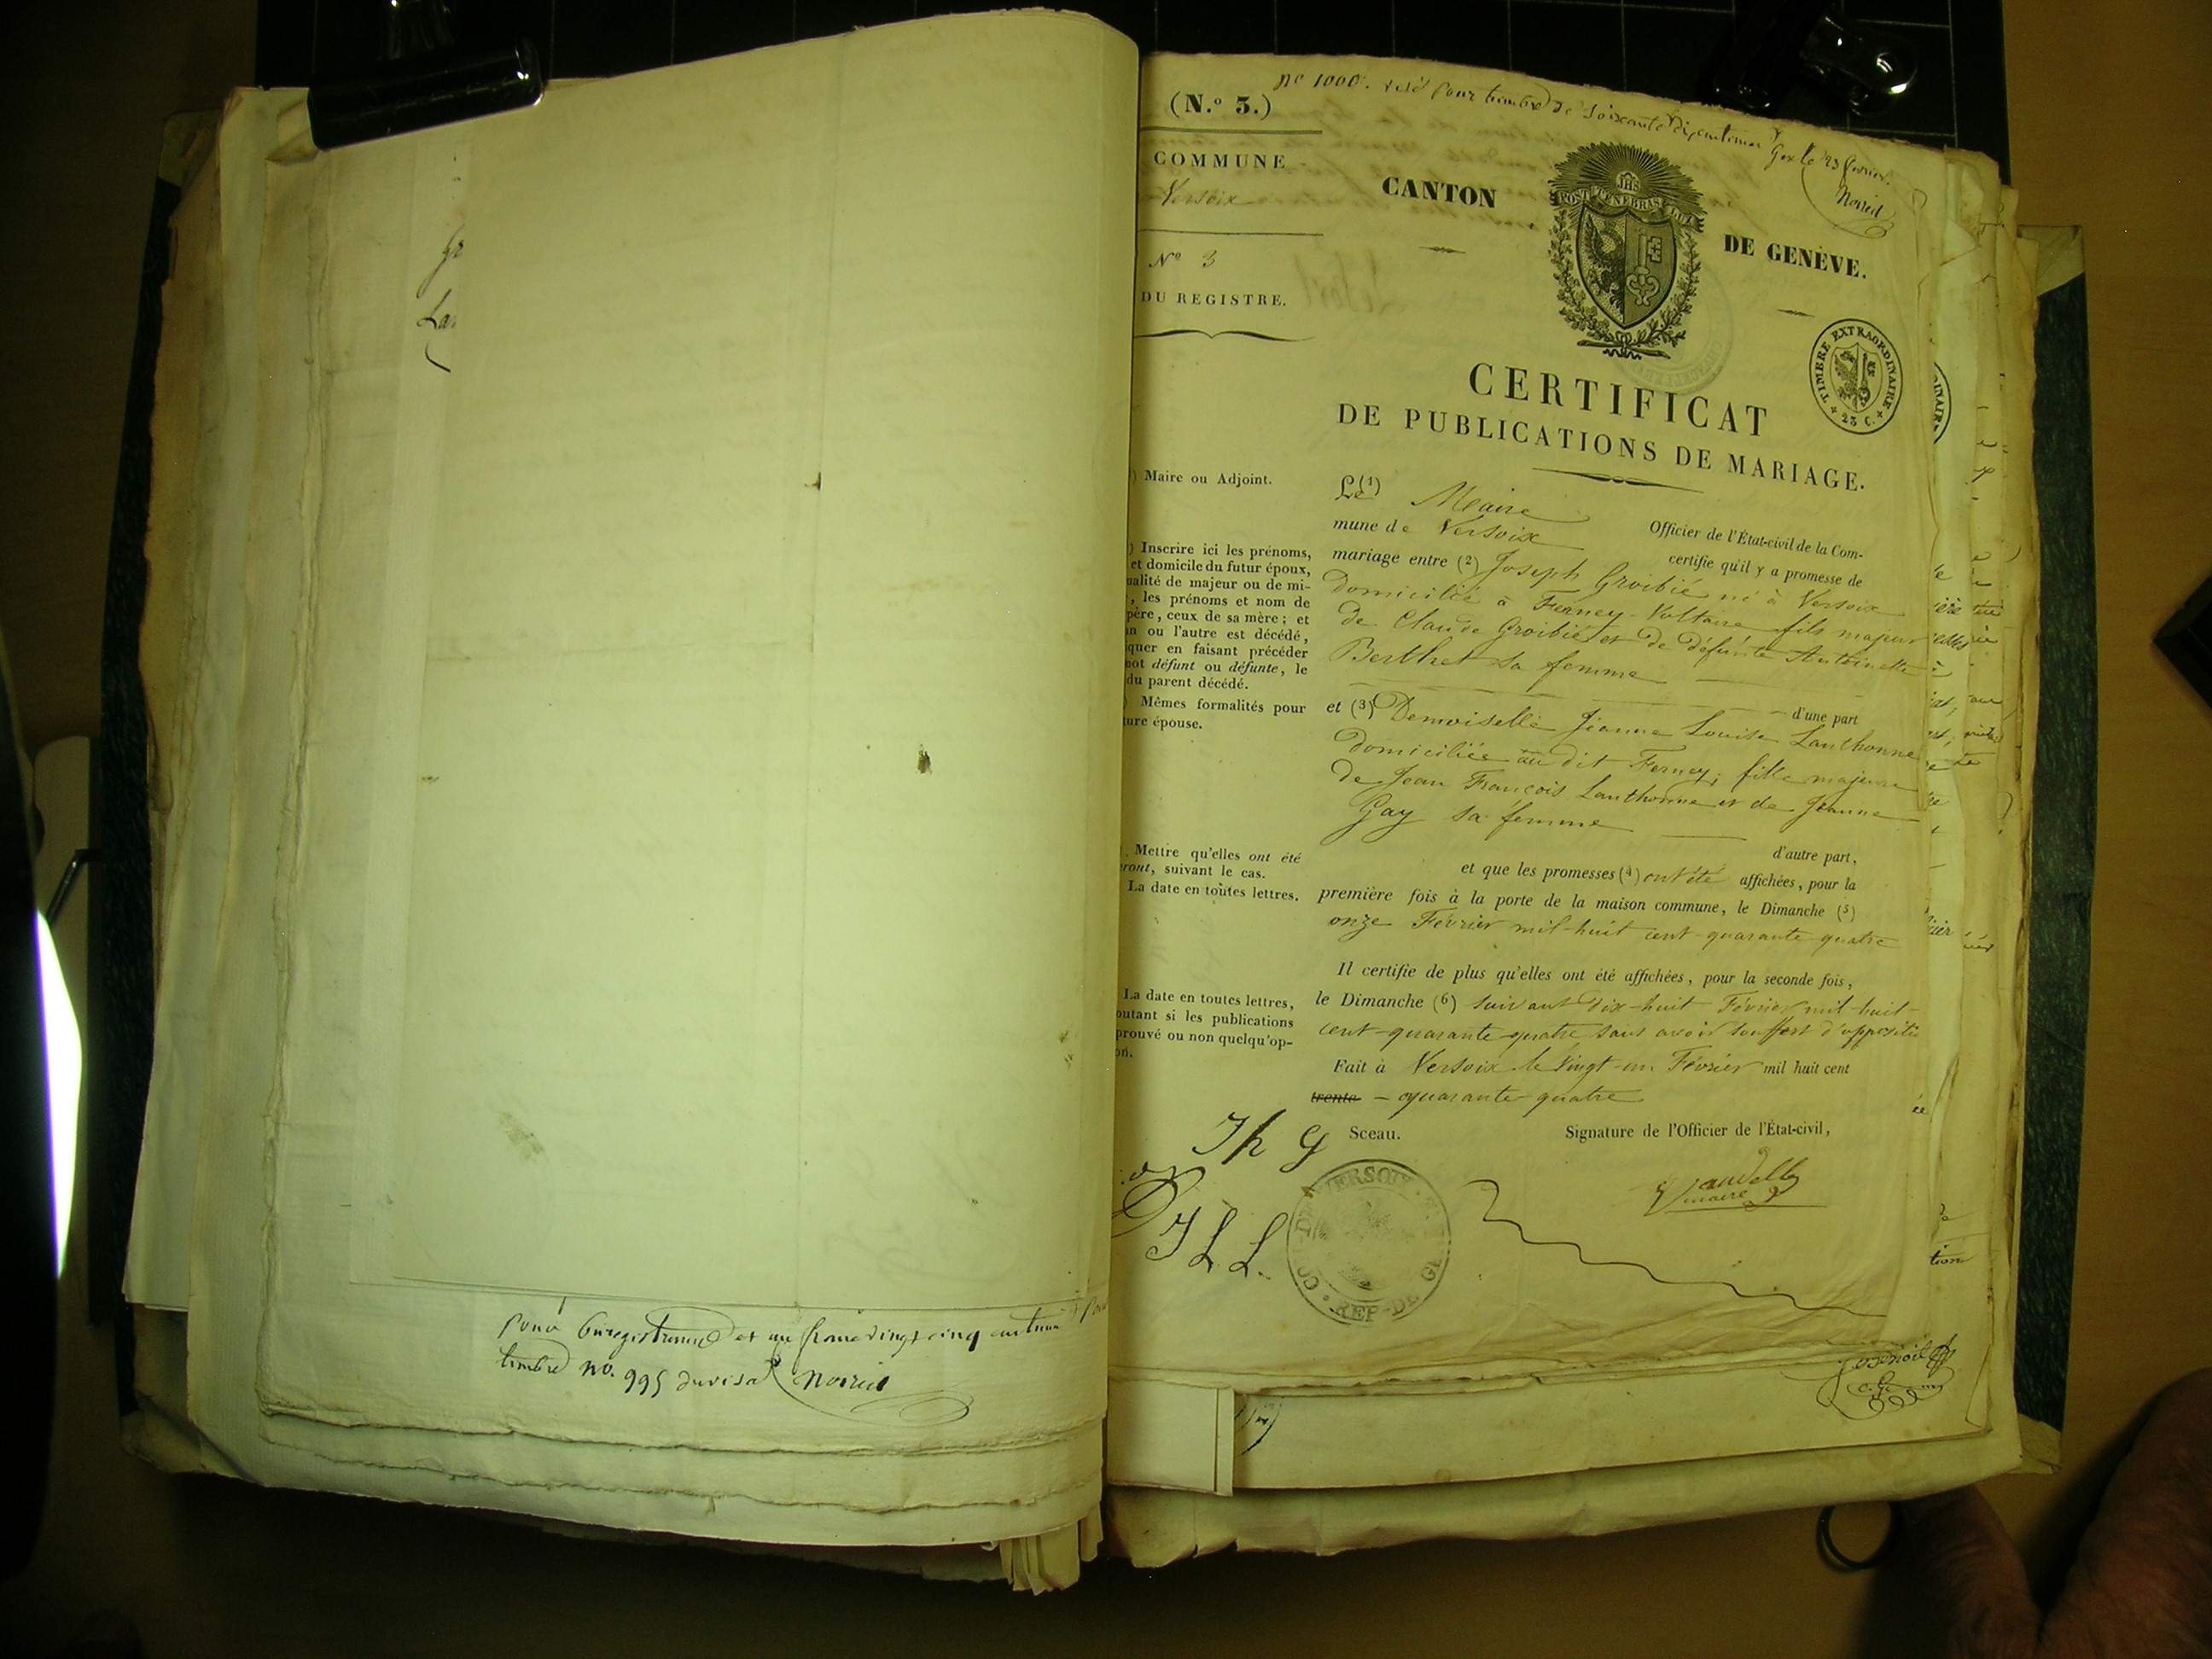 Pour Enregistrement et un franc vingt cinq centimes pour
timbre no. 995 du visa
nº 1000. visé pour timbre de soixante dix centimes
Gex le 23 février.
(N.º 3.)
COMMUNE
Versoix
Nº 3
DU REGISTRE.
CANTON
JHS
POST TENEBRAS LUX
DE GENÈVE.
TIMBRE EXTRAORDINAIRE
25 C.
CERTIFICAT
DE PUBLICATIONS DE MARIAGE.
) Maire ou Adjoint.
) Inscrire ici les prénoms,
et domicile du futur époux,
ualité de majeur ou de mi-
, les prénoms et nom de
père, ceux de sa mère; et
un ou l'autre est décédé,
quer en faisant précéder
mot défunt ou défunte, le
du parent décédé.
) Mêmes formalités pour
ture épouse.
. Mettre qu'elles ont été
eront, suivant le cas.
La date en toutes lettres.
La date en toutes lettres,
outant si les publications
prouvé ou non quelqu'op-
on.
Le (1) Maire Officier de l'État-civil de la Com-
mune de Versoix certifie qu'il y a promesse de
mariage entre (2) Joseph Groibié né à Versoix
Domicilié à Ferney-Voltaire fils majeur
de Claude Groibié et de défunte Antoinette
Berthet sa femme
d'une part
et (3) Demoiselle Jeanne Louise Lanthonne
domiciliée au dit Ferney; fille majeure
de Jean François Lanthonne et de Jeanne
Gay sa femme
d'autre part,
et que les promesses (4) ont été affichées, pour la
première fois à la porte de la maison commune, le Dimanche (5)
onze Février mil-huit cent-quarante-quatre
Il certifie de plus qu'elles ont été affichées, pour la seconde fois,
le Dimanche (6) suivant dix-huit Février mil-huit-
cent-quarante-quatre sans avoir souffert d'oppositi
Fait à Versoix le vingt-un Février mil huit cent
trente - quarante-quatre
Sceau. Signature de l'Officier de l'État-civil,
Jh G
J L L.
maire
VERSOIX
REP. DE GE